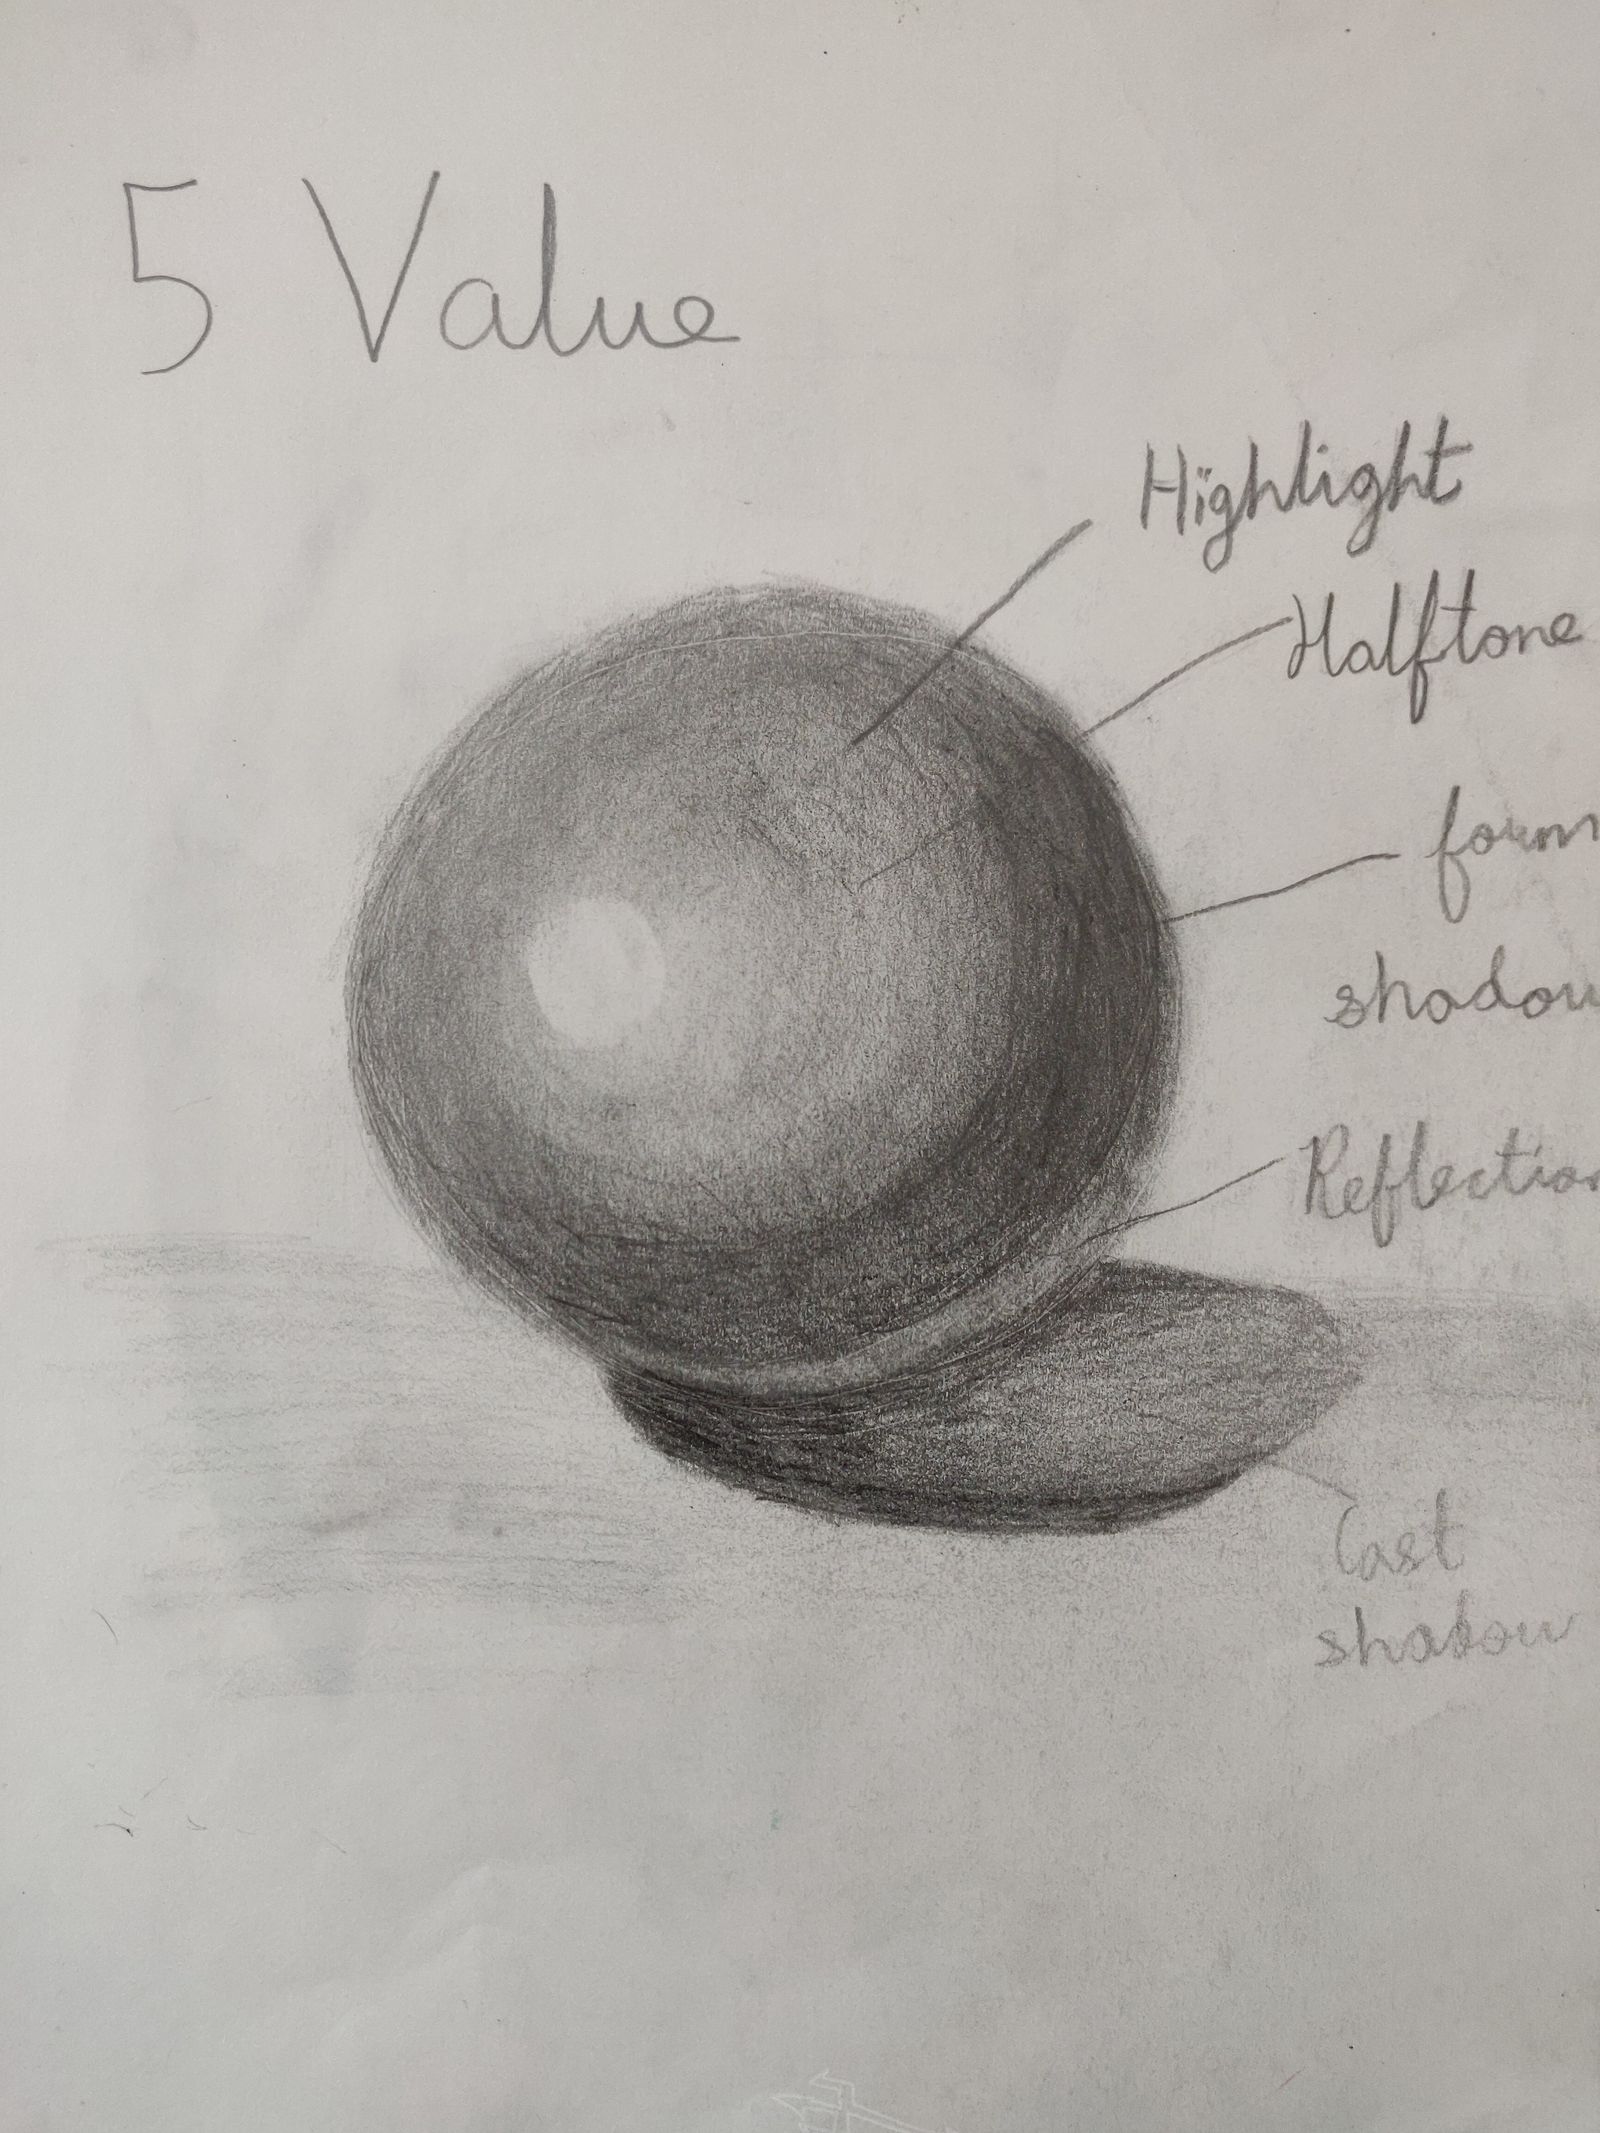 5 Value
Highlight
Halftone
form
shadow
Reflection
Cast
shadow